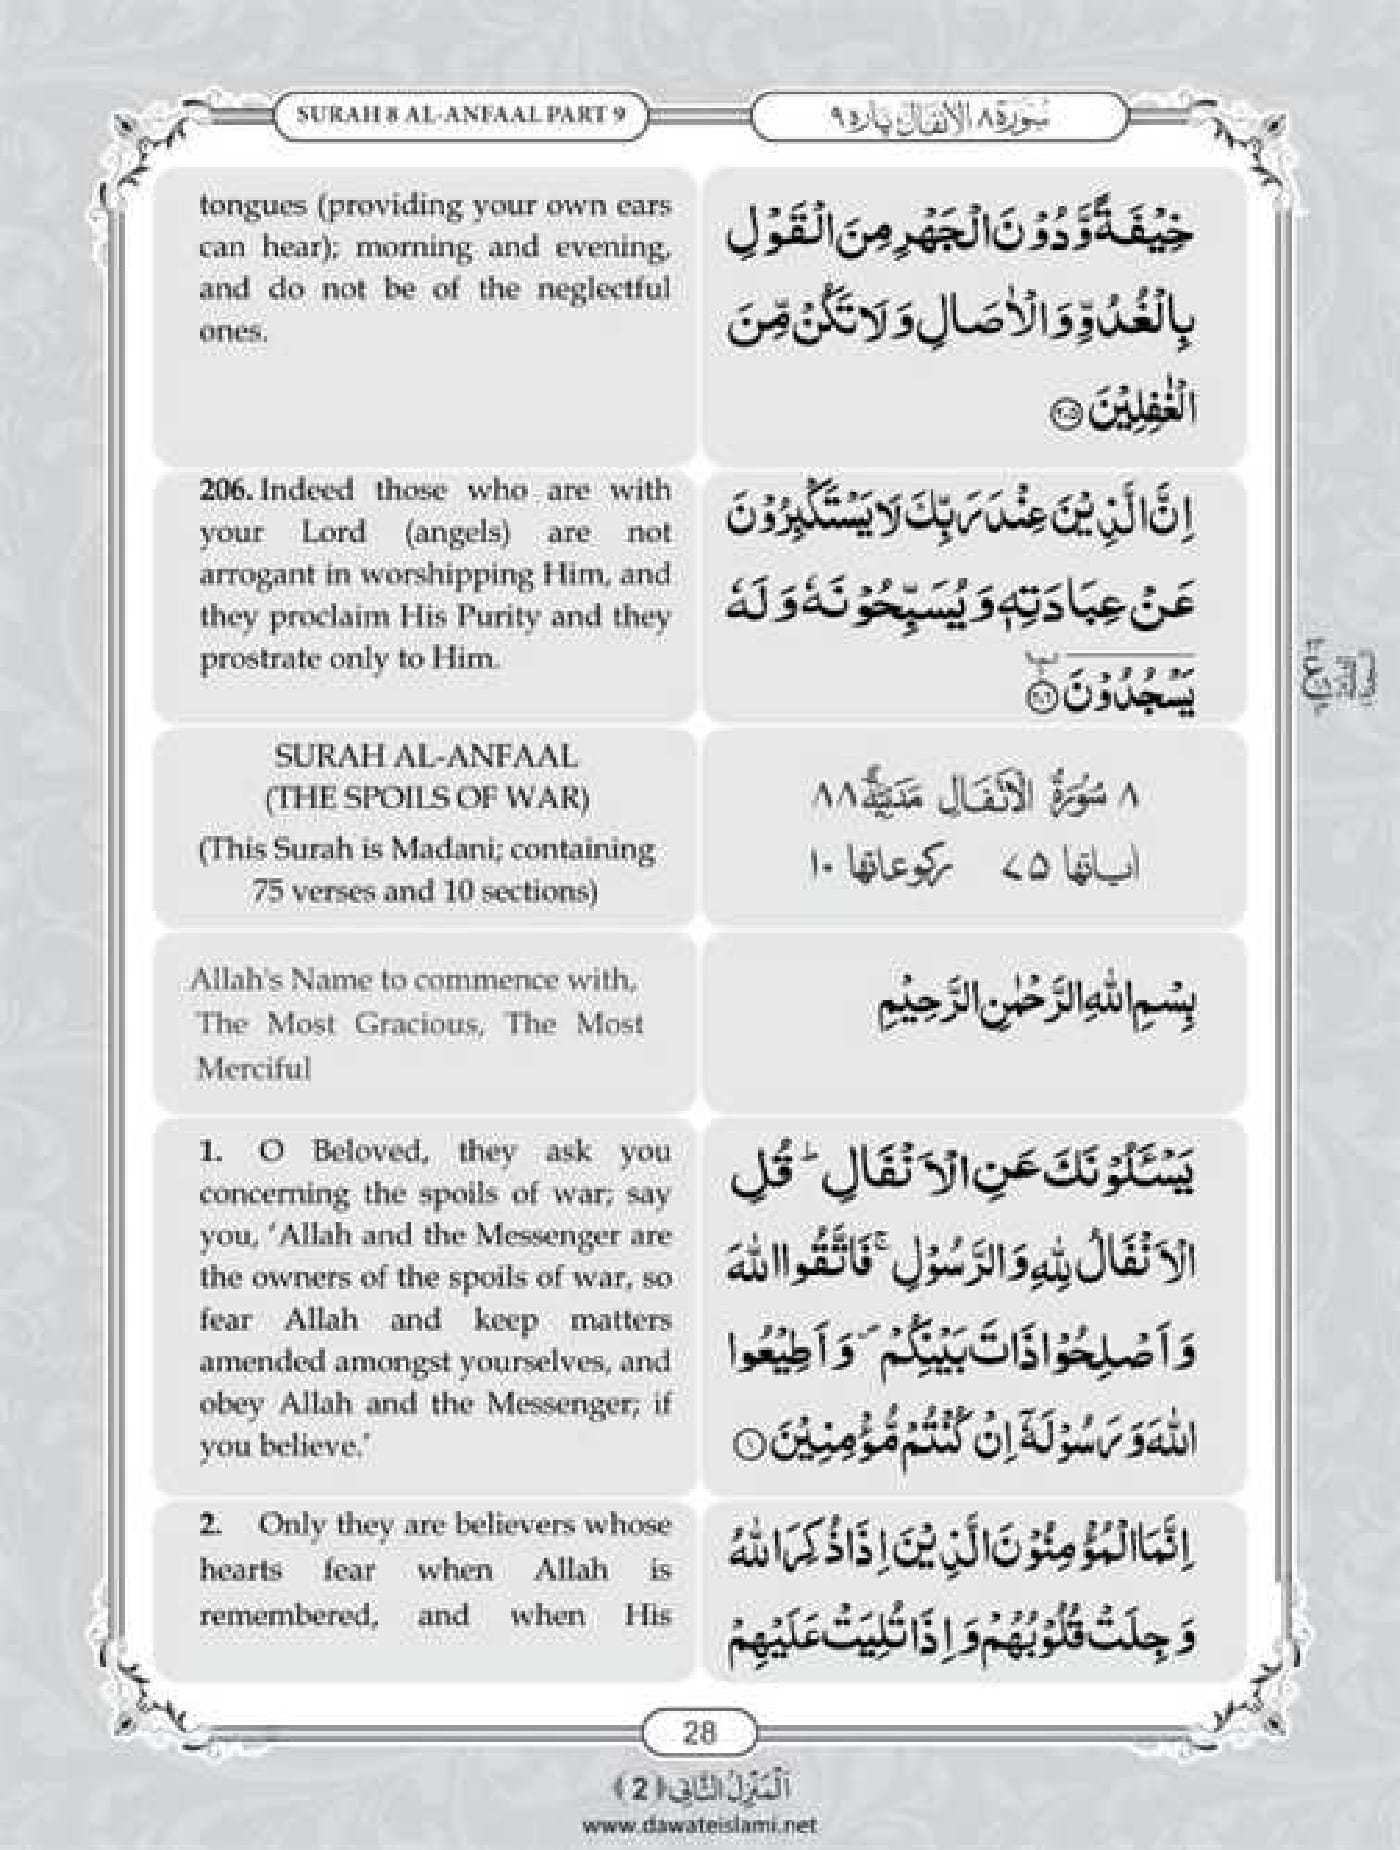 SURAH 8 AL-ANFAAL PART 9
سُورَة ٨ الْاَنْفَال پارہ ٩
tongues (providing your own ears
can hear); morning and evening,
and do not be of the neglectful
ones.
خِيْفَةً وَّدُوْنَ الْجَهْرِ مِنَ الْقَوْلِ
بِالْغُدُوِّ وَ الْاٰصَالِ وَ لَا تَكُنْ مِّنَ
الْغٰفِلِيْنَ ﴿۲۰۵﴾
206. Indeed those who are with
your Lord (angels) are not
arrogant in worshipping Him, and
they proclaim His Purity and they
prostrate only to Him.
اِنَّ الَّذِيْنَ عِنْدَ رَبِّكَ لَا يَسْتَكْبِرُوْنَ
عَنْ عِبَادَتِهٖ وَ يُسَبِّحُوْنَهٗ وَ لَهٗ
يَسْجُدُوْنَ ﴿۲۰۶﴾
SURAH AL-ANFAAL
(THE SPOILS OF WAR)
(This Surah is Madani; containing
75 verses and 10 sections)
٨ سُوْرَةُ الْاَنْفَالِ مَدَنِيَّةٌ ٨٨
اٰیاتها ۷۵ رکوعاتها ۱۰
Allah's Name to commence with,
The Most Gracious, The Most
Merciful
بِسْمِ اللّٰهِ الرَّحْمٰنِ الرَّحِيْمِ
1. O Beloved, they ask you
concerning the spoils of war; say
you, ‘Allah and the Messenger are
the owners of the spoils of war, so
fear Allah and keep matters
amended amongst yourselves, and
obey Allah and the Messenger; if
you believe.’
يَسْـَٔلُوْنَكَ عَنِ الْاَنْفَالِ ؕ قُلِ
الْاَنْفَالُ لِلّٰهِ وَ الرَّسُوْلِ ۚ فَاتَّقُوا اللّٰهَ
وَ اَصْلِحُوْا ذَاتَ بَيْنِكُمْ ۪ وَ اَطِيْعُوا
اللّٰهَ وَ رَسُوْلَهٗۤ اِنْ كُنْتُمْ مُّؤْمِنِيْنَ ﴿۱﴾
2. Only they are believers whose
hearts fear when Allah is
remembered, and when His
اِنَّمَا الْمُؤْمِنُوْنَ الَّذِيْنَ اِذَا ذُكِرَ اللّٰهُ
وَجِلَتْ قُلُوْبُهُمْ وَ اِذَا تُلِيَتْ عَلَيْهِمْ
28
اَلْمَنْزِلُ الثَّانِي ﴿ 2 ﴾
www.dawateislami.net